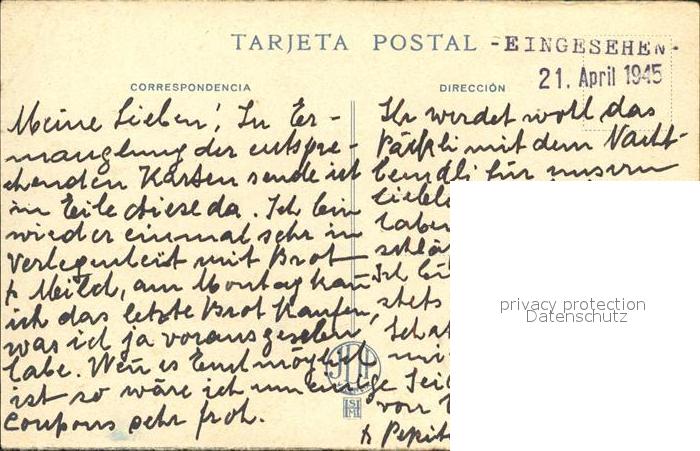 TARJETA POSTAL
-EINGESEHEN-
21. April 1945
CORRESPONDENCIA
DIRECCIÓN
Meine Lieben! In Er-
manglung der entspre-
chenden Karten sende ich
in Eile diese da. Ich bin
wieder einmal sehr in
Verlegenheit mit Brot
& Milch, am Montag kann
ich das letzte Brot kaufen,
was ich ja vorausgesehen
habe. Wenn es Euch möglich
ist so wäre ich um einige
Coupons sehr froh.
Ihr werdet wohl das
Päckli mit dem Nacht-
hemdli für unsern
Ich
stets
von
& Pepit
privacy protection
Datenschutz